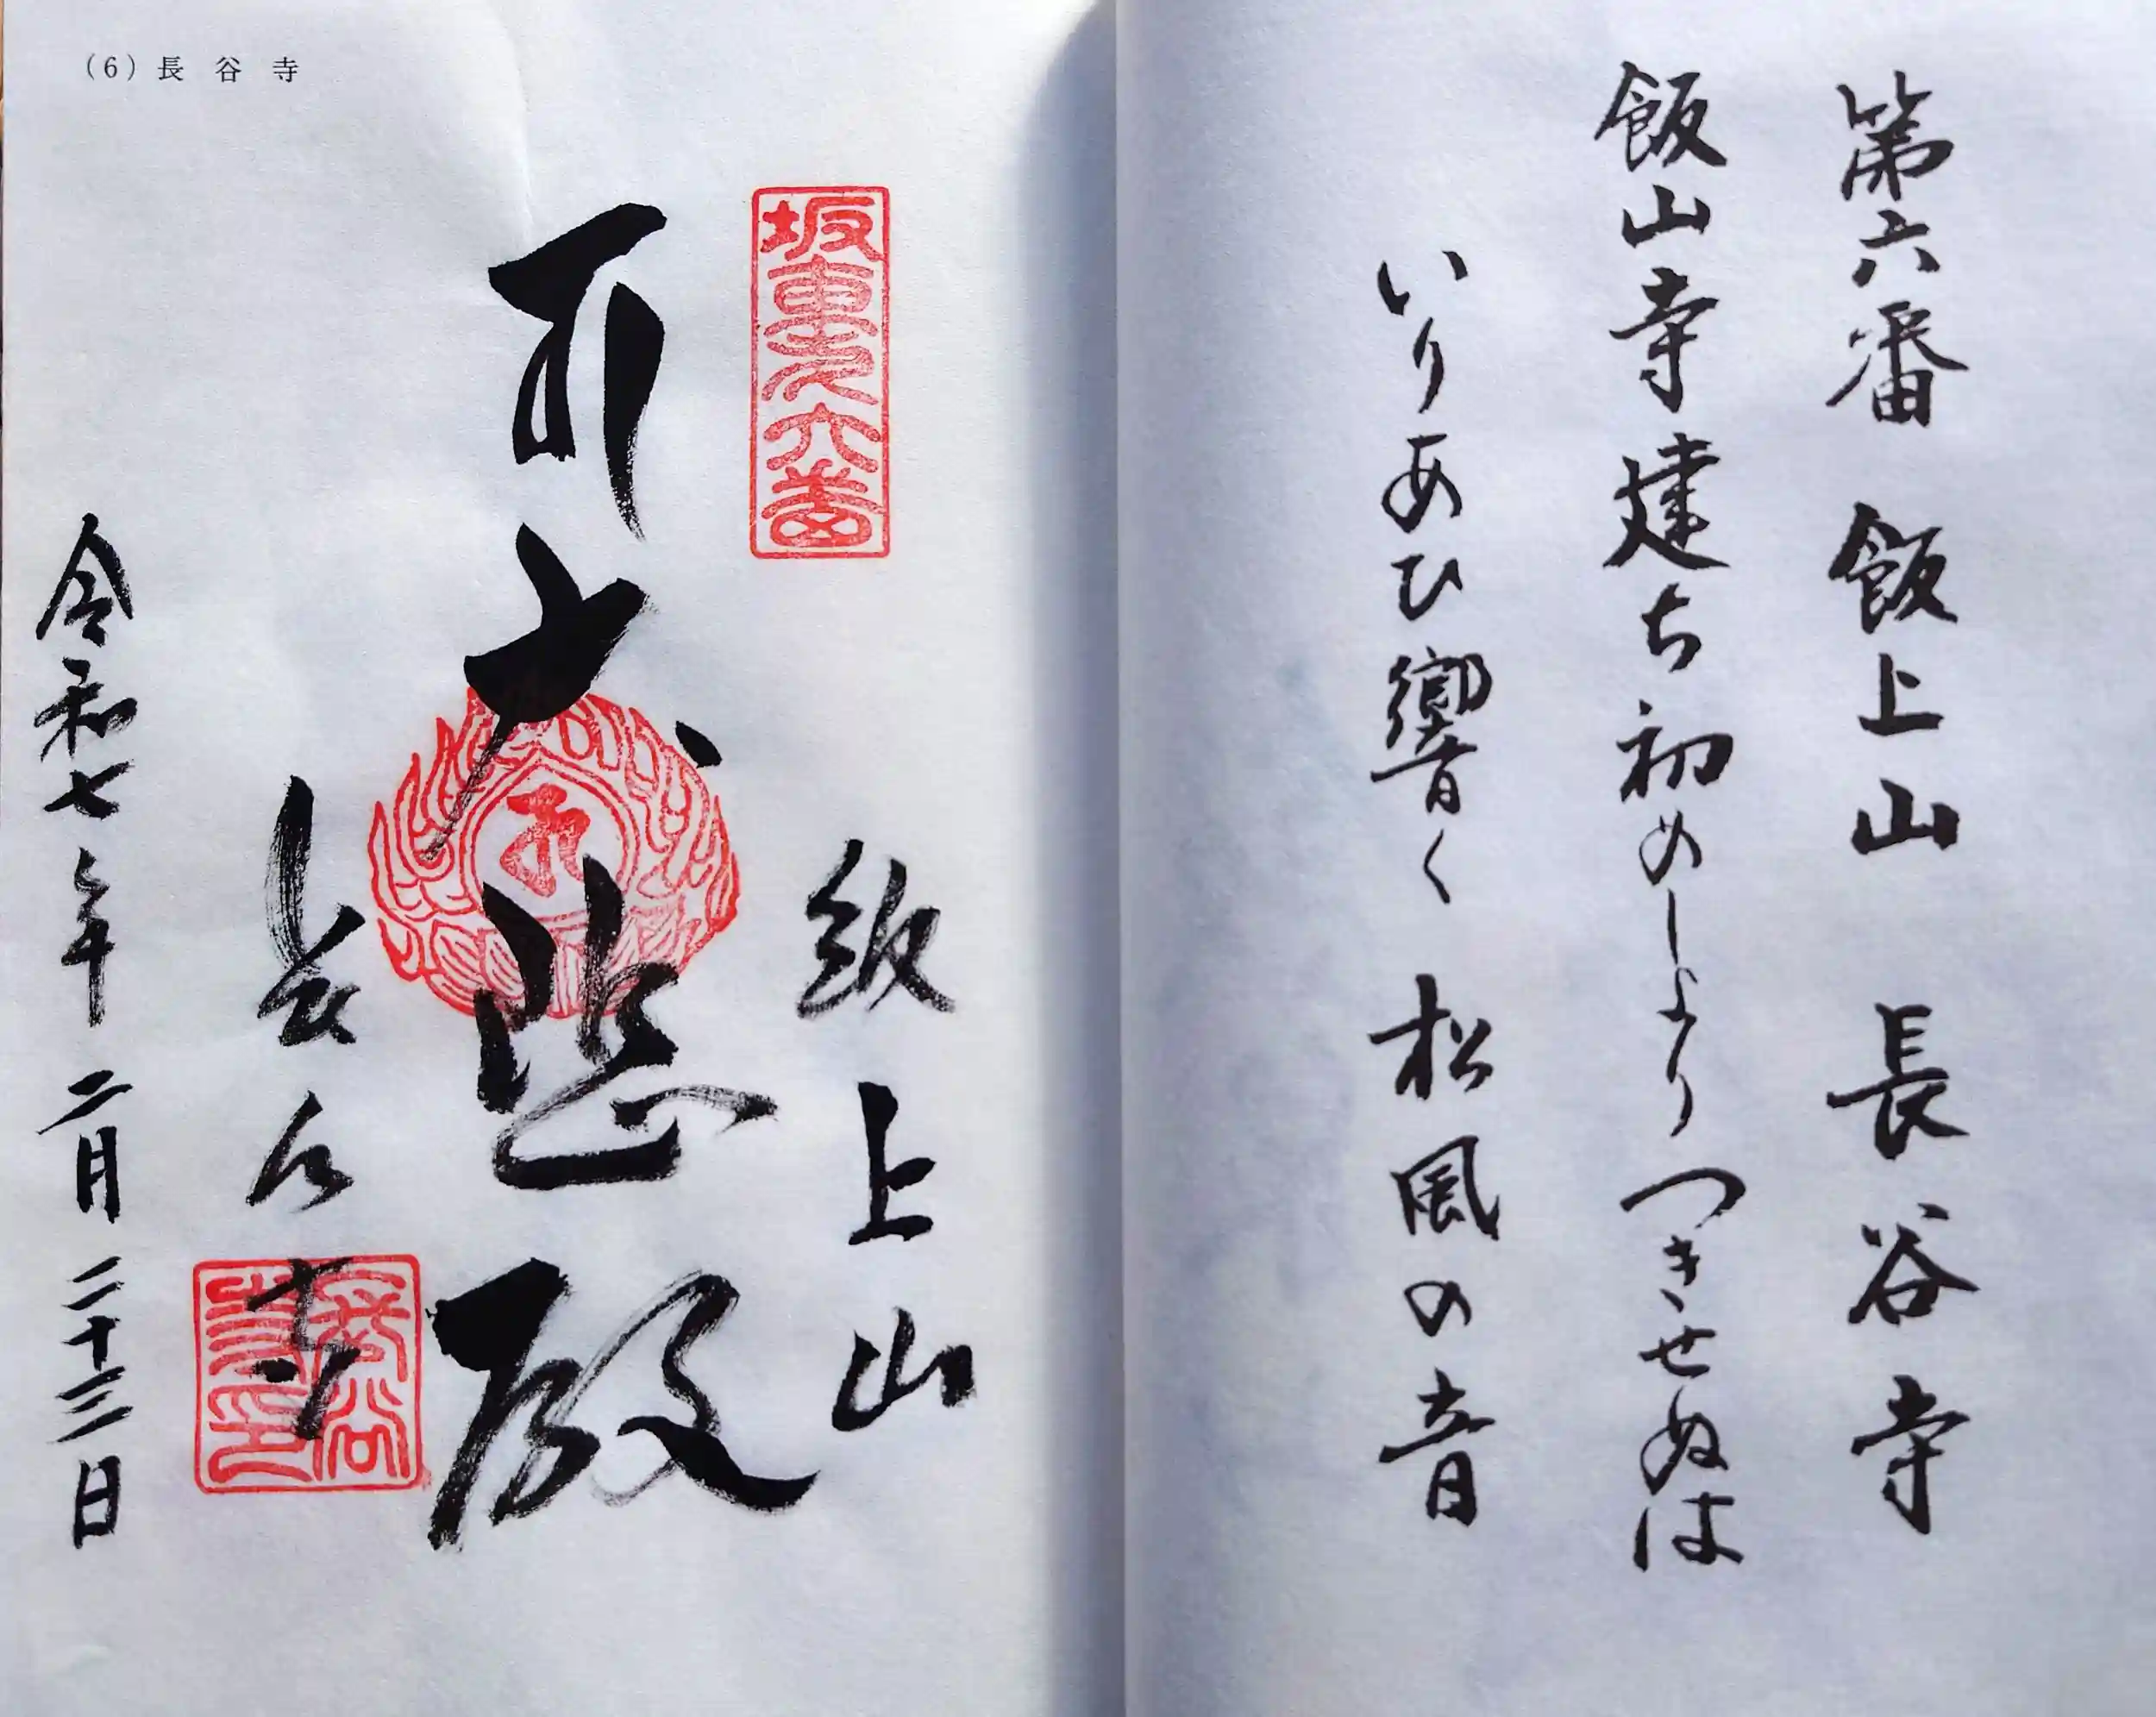 第六番 飯上山 長谷寺
飯山寺建ち初めしよりつきせぬは
いりあひ響く 松風の音
(6)長谷寺
坂東六番
飯上山
大悲殿
長谷寺
令和七年二月二十三日